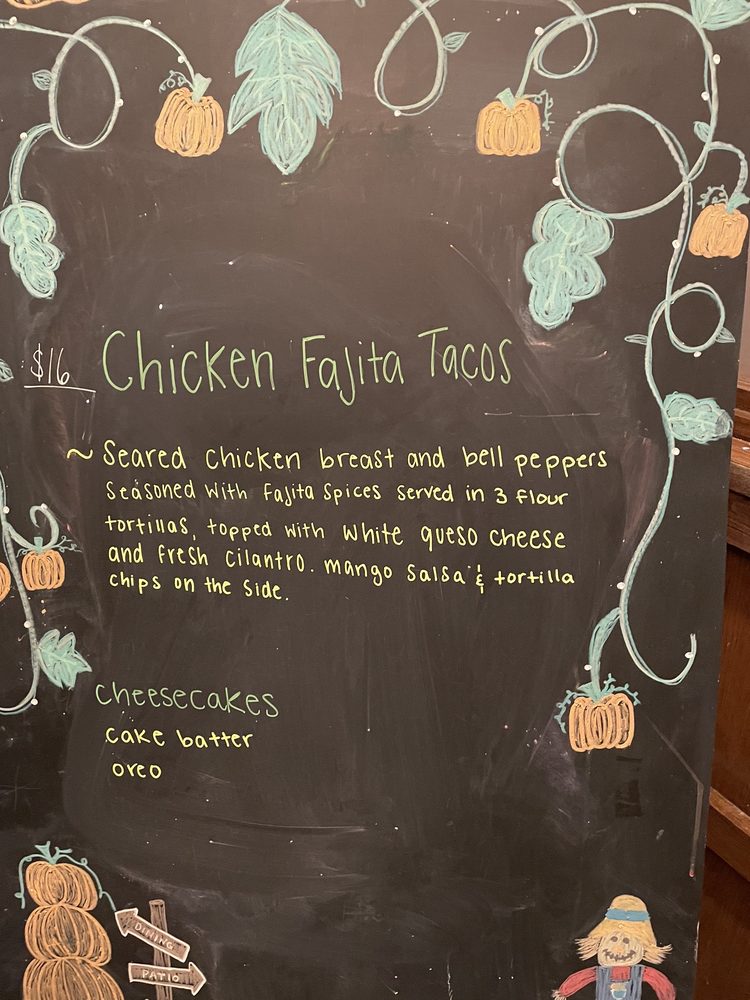 $16 Chicken Fajita Tacos
~ Seared chicken breast and bell peppers
seasoned with fajita spices served in 3 flour
tortillas, topped with white queso cheese
and fresh cilantro. mango salsa & tortilla
chips on the side.
cheesecakes
cake batter
oreo
DINING
PATIO